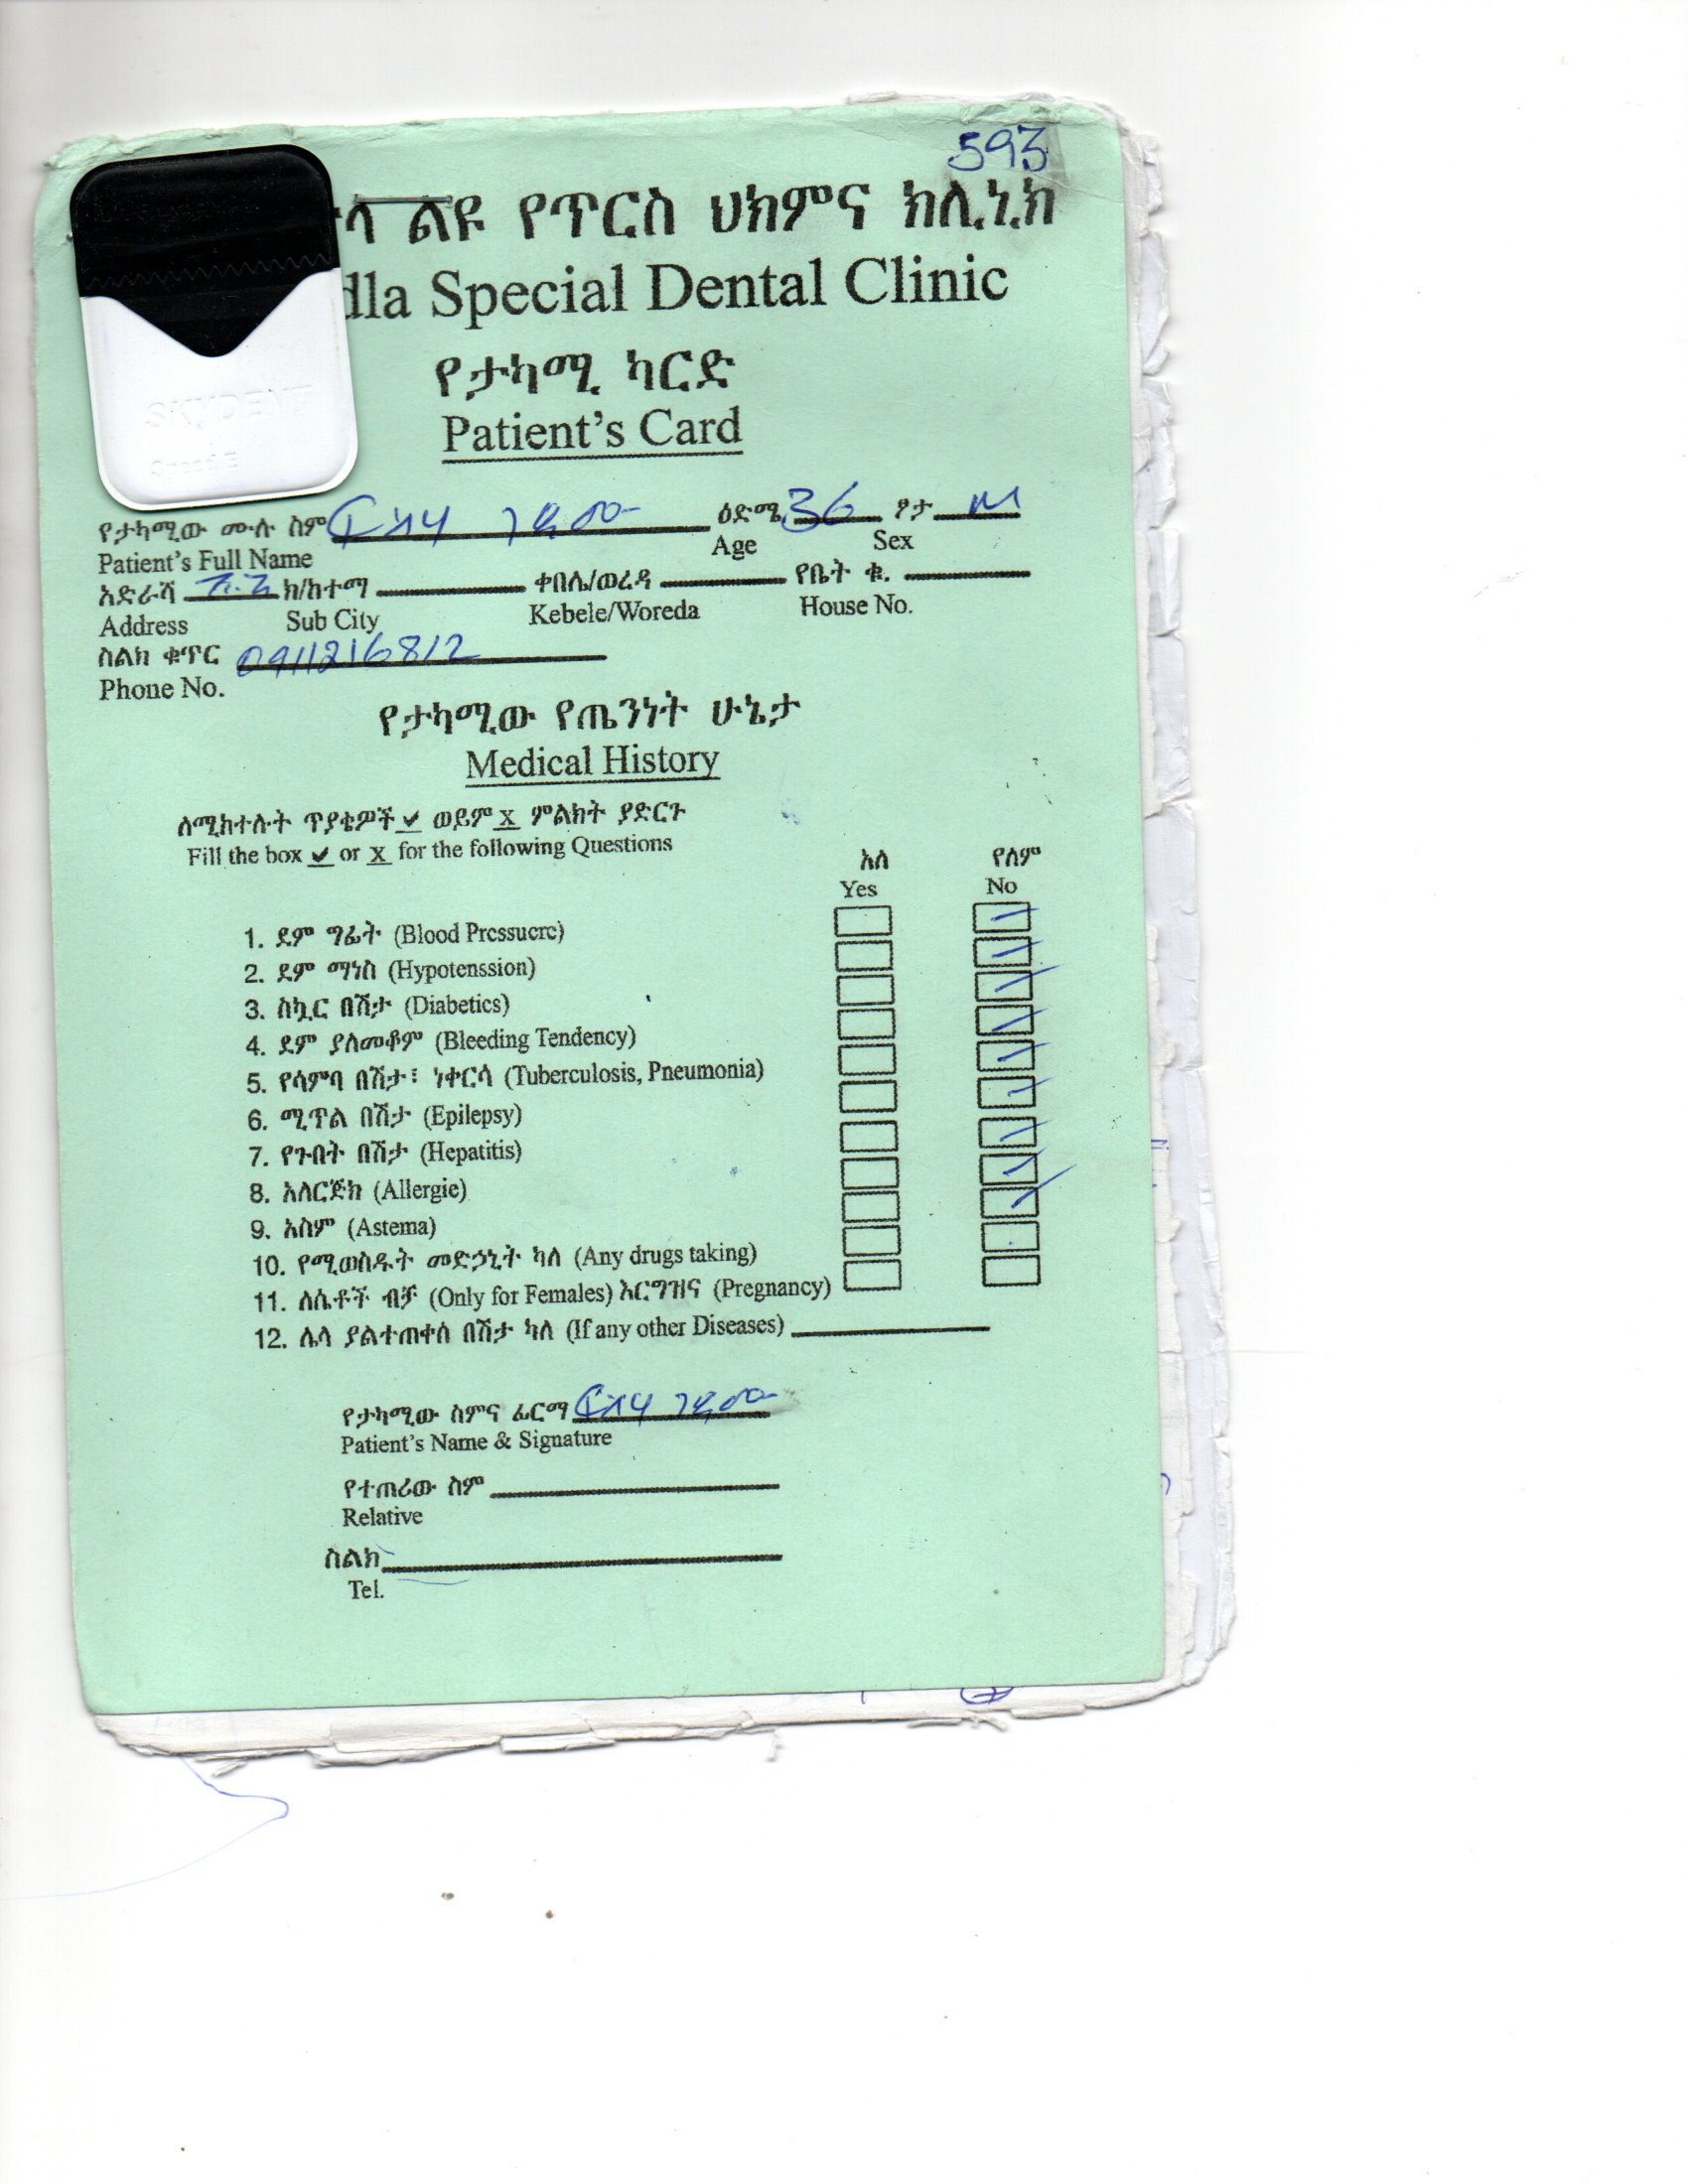 593
ላ ልዩ የጥርስ ህክምና ክሊኒክ
dla Special Dental Clinic
የታካሚ ካርድ
Patient's Card
SKYDENT
Speed E
የታካሚው ሙሉ ስም ዕድሜ 36 ፆታ M
Patient's Full Name Age Sex
አድራሻ ክ/ከተማ ቀበሌ/ወረዳ የቤት ቁ.
Address Sub City Kebele/Woreda House No.
ስልክ ቁጥር 0911216812
Phone No.
የታካሚው የጤንነት ሁኔታ
Medical History
ለሚከተሉት ጥያቄዎች ✓ ወይም X ምልክት ያድርጉ
Fill the box ✓ or X for the following Questions
አለ የለም
Yes No
1. ደም ግፊት (Blood Pressuere)
2. ደም ማነስ (Hypotenssion)
3. ስኳር በሽታ (Diabetics)
4. ደም ያለመቆም (Bleeding Tendency)
5. የሳምባ በሽታ፣ ነቀርሳ (Tuberculosis, Pneumonia)
6. ሚጥል በሽታ (Epilepsy)
7. የጉበት በሽታ (Hepatitis)
8. አለርጅክ (Allergie)
9. አስም (Astema)
10. የሚወስዱት መድኃኒት ካለ (Any drugs taking)
11. ለሴቶች ብቻ (Only for Females) እርግዝና (Pregnancy)
12. ሌላ ያልተጠቀሰ በሽታ ካለ (If any other Diseases)
የታካሚው ስምና ፊርማ
Patient's Name & Signature
የተጠሪው ስም
Relative
ስልክ
Tel.